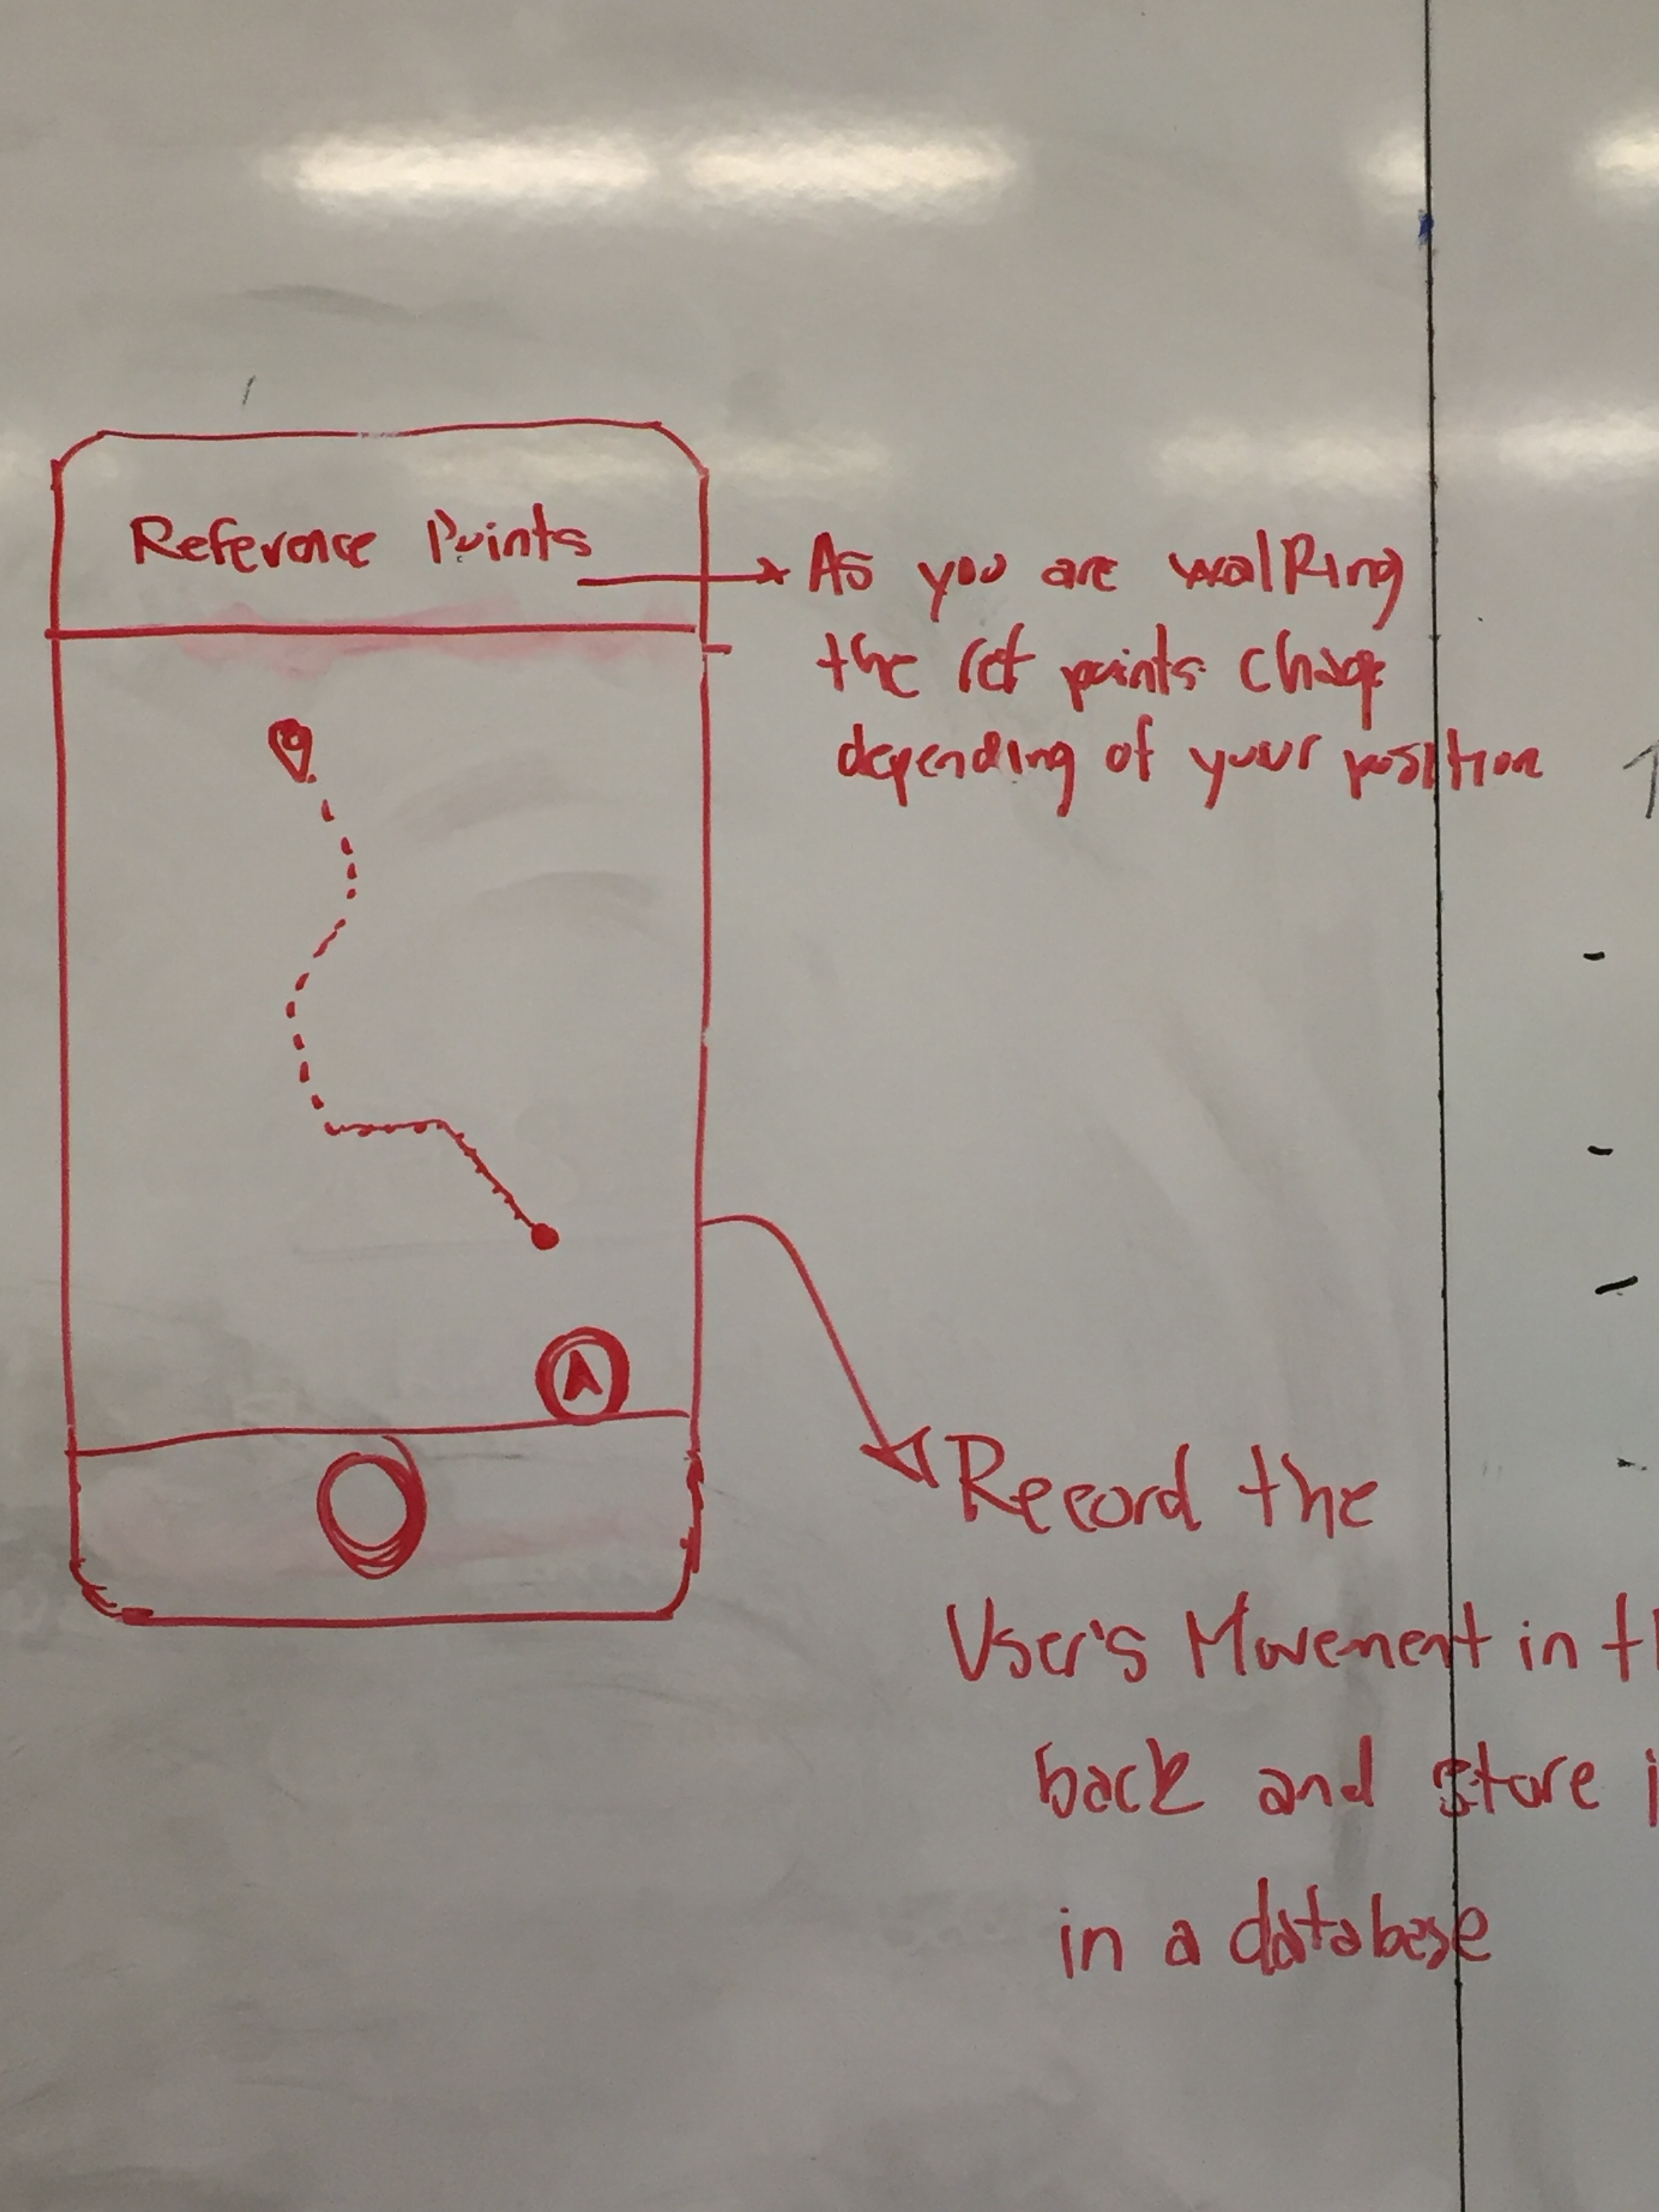 Reference Points
As you are walking
the ref points change
depending of your position
A
Record the
User's Movement in
back and store
in a database